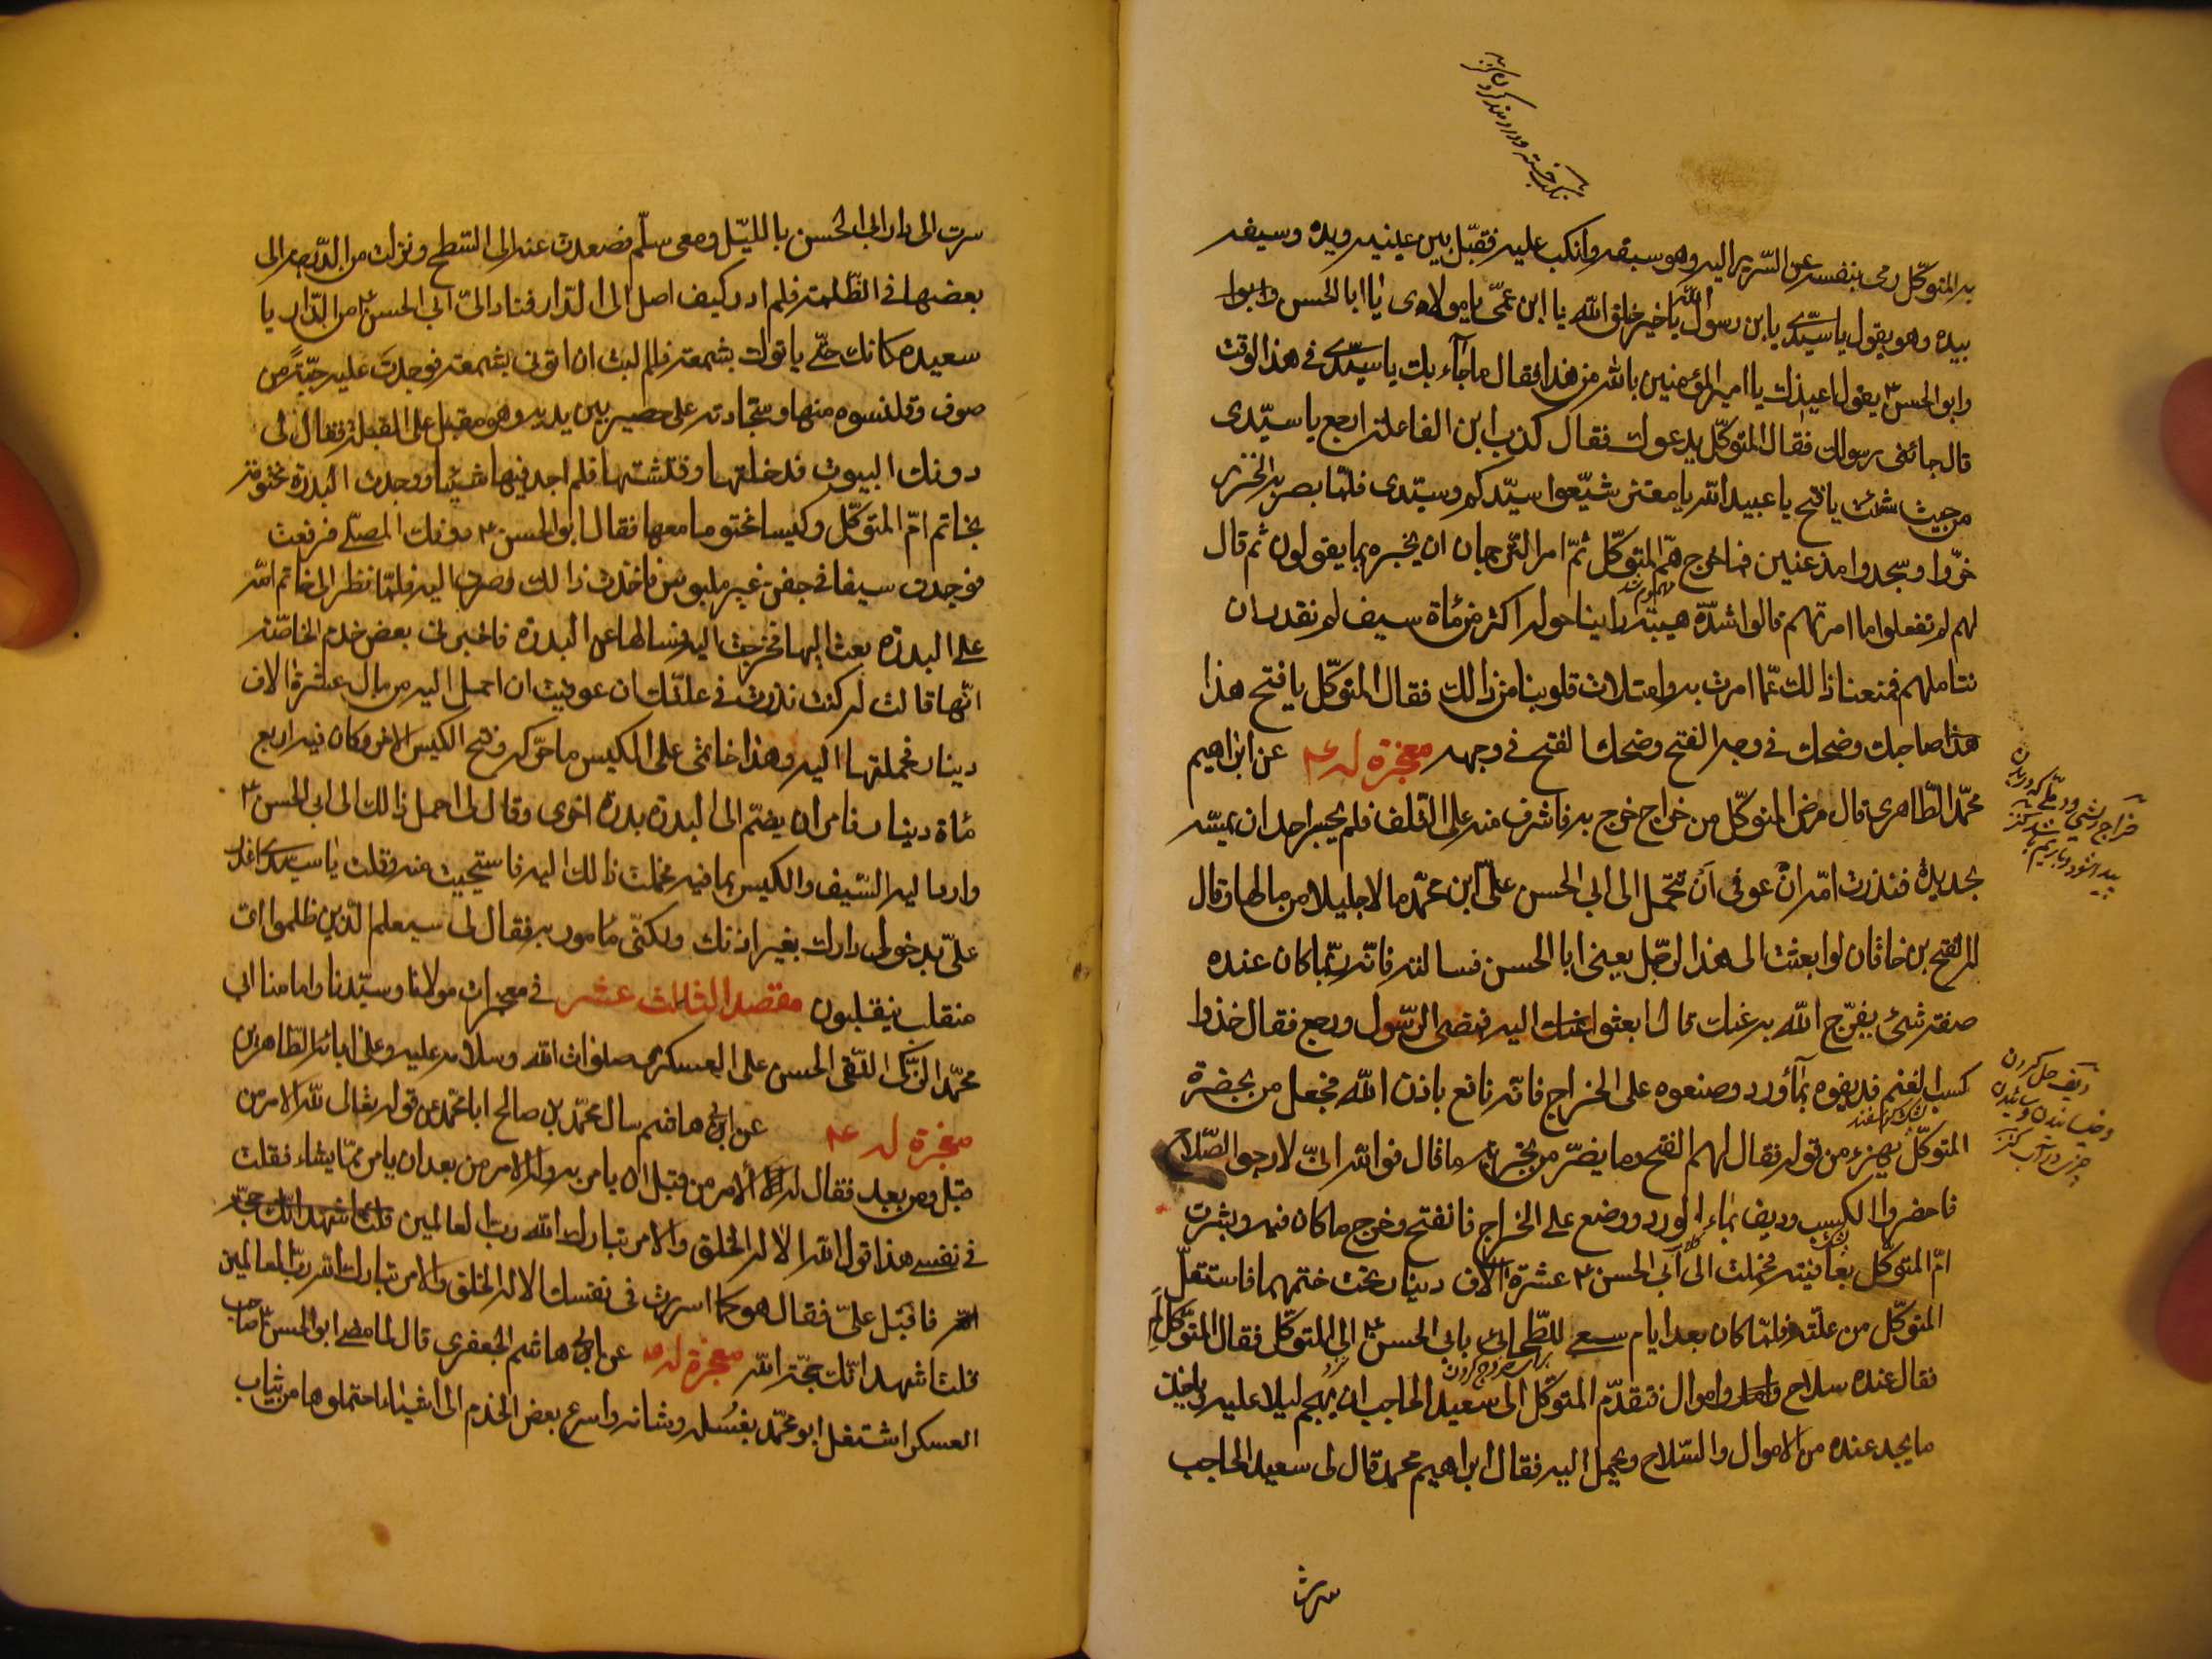 به المتوكّل رمى بنفسه عن السّرير اليه وهو سبقه وانكب عليه فقبّل بين عينيه ويده وسيفه
بيده وهو يقول يا سيّدى يا ابن رسول الله يا خير خلق الله يا ابن عمّى يا مولاى يا ابا الحسن وابوا
وابو الحسن ع يقول اعيذك يا امير المؤمنين بالله من هذا فقال ما جآء بك يا سيّدى فى هذا الوقت
قال جائنى رسولك فقال المتوكّل يدعوك فقال كذب ابن الفاعلة ارجع يا سيّدى
من حيث شئت يا فتح يا عبيد الله يا معتز شيّعوا سيّدكم وسيّدى فلمّا بصر به الخزر
خرّوا وسجدوا مذعنين فلما خرج المتوكّل ثمّ امر الترجمان ان يخبره بما يقولون ثم قال
لهم لم تفعلوا ما امرتهم قالوا شدّة هيبته راينا حوله اكثر من مأة سيف لم نقدر ان
نتاملهم فمنعنا ذالك عمّا امرت به وامتلات قلوبنا من ذالك فقال المتوكّل يا فتح هذا
هذا صاحبك وضحك فى وجه الفتح وضحك الفتح فى وجهه معجزة له ع عن ابراهيم
محمّد الطّاهرى قال مرض المتوكّل من خراج خرج به فاشرف منه على التّلف فلم يجبر احد ان يمسّه
بحديدة فنذرت امّه ان عوفى ان تحمل الى ابى الحسن علىّ ابن محمّد مالا جليلا من مالها وقال
له الفتح بن خاقان لوا بعثت الى هذا الرّجل يعنى ابا الحسن فسالته فانّه ربّما كان عنده
صفة شئ يفرّج الله به عنك قال ابعثوا اليه فمضى الرّسول ورجع فقال خذوا
كسب الغنم فديفوه بمآء ورد وضعوه على الخراج فانّه نافع باذن الله فجعل من بحضرة
المتوكّل يهزء من قوله فقال لهم الفتح وما يضرّ من تجربة ما قال فوالله انّى لارجو الصّلاح
فاحضروا الكسب وديف بماء الورد ووضع على الخراج فانفتح وخرج ما كان فيه وبشرت
امّ المتوكّل بعافيته فحملت الى ابى الحسن ع عشرة الاف دينار تحت ختمها فاستقلّ
المتوكّل من علّته فلمّا كان بعد ايام سعى البطحائى بابى الحسن ع الى المتوكّل فقال المتوكّل
فقال عنده سلاح واموال فتقدّم المتوكّل الى سعيد الحاجب ان يهجم ليلا عليه وياخذ
ما يجد عنده من الاموال والسّلاح ويحمل اليه فقال ابراهيم محمد قال لى سعيد الحاجب
سرت
سرت الى دار ابى الحسن بالليّل ومعى سلّم فصعدت عنه الى السّطح ونزلت من الدّرجه الى
بعضها فى الظّلمة فلم ادر كيف اصل الى الدّار فنادانىّ ابى الحسن ع من الدّار يا
سعيده مكانك حتّى ياتوك بشمعة فلم البث ان اتونى بشمعة فوجدت عليه جبّة من
صوف وقلنسوه منها وسجّادته على حصير بين يديه وهو مقبل على القبلة فقال لى
دونك البيوت فدخلتها وفتشتها فلم اجد فيها شيئا ووجدت البدرة مختومة
بخاتم امّ المتوكّل وكيسا مختوما معها فقال ابو الحسن ع دونك المصلّى فرفعت
فوجدت سيفا فى جفن غير ملبوس فاخذت ذالك وصرت اليه فلمّا نظر الى خاتم امّه
على البدرة بعث اليها فخرجت اليه فسالها عن البدرة فاخبرنى بعض خدم الخاصّة
انّها قالت له كنت نذرت فى علّتك ان عوفيت ان احمل اليه من مالى عشرة الاف
دينار فحملتها اليه وهذا خاتمى على الكيس ما حرّكه وفتح الكيس الاخر وكان فيه اربع
مأة دينار فامر ان يضمّ الى البدرة بدرة اخرى وقال لى احمل ذالك الى ابى الحسن ع
واردد اليه السّيف والكيس بما فيه فحملت ذالك اليه فاستحييت منه وقلت يا سيّدى
علىّ بدخولى دارك بغير اذنك ولكنّى مأمور به فقال لى سيعلم الّذين ظلموا اىّ
منقلب ينقلبون مقصد الثالث عشر فى معجزات مولانا وسيّدنا وامامنا ابى
محمّد الزكى التّقى الحسن على العسكرى صلوات الله وسلامه عليه وعلى ابائه الطّاهرين
معجزة له ع عن ابى هاشم سال محمّد بن صالح ابا محمّد عن قوله تعالى للّه الامر من
قبل ومن بعد فقال له الامر من قبل ان يامر به وله الامر من بعد ان يامر بما يشاء فقلت
فى نفسى هذا قول الله الا له الخلق والامر تبارك الله ربّ العالمين قلت اشهد انّك حجّة
الله فاقبل علىّ فقال هو كما اسررت فى نفسك الا له الخلق والامر تبارك الله ربّ العالمين
قلت اشهد انّك حجّة الله معجزة له ع عن ابى هاشم الجعفرى قال لما مضى ابو الحسن ع صاحب
العسكر اشتغل ابو محمّد بغسله وشانه واسرع بعض الخدم الى اشياء احتملوها من ثياب